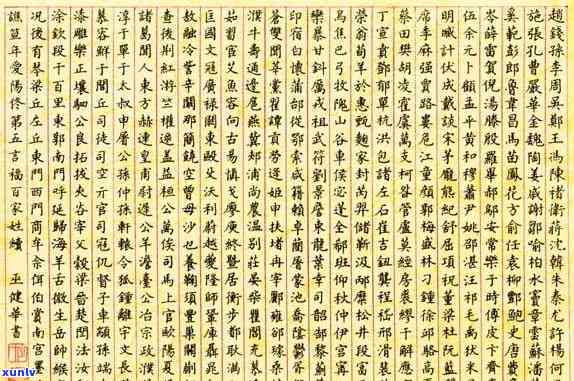 趙錢孫李周吳鄭王馮陳褚衛蔣沈韓朱秦尤許楊何
施張孔曹嚴華金魏陶姜戚謝鄒喻柏水竇章雲蘇潘
奚範彭郎魯韋昌馬苗鳳花方俞任袁柳酆鮑史唐費
岑薛雷賀倪湯滕殷羅畢郝鄔安常樂于時傅皮卞齊
伍余元卜顧孟平黃和穆蕭尹姚邵湛汪祁毛禹狄米
明臧計伏成戴談宋茅龐熊紀舒屈項祝董梁杜阮藍
席季麻強賈路婁危江童顏郭梅盛林刁鍾徐邱駱
蔡田樊胡凌霍虞萬支柯昝管盧莫經房裘繆干解應
丁宣賁鄧郁單杭洪包諸左石崔吉鈕龔程嵇邢滑
榮翁荀羊於惠甄麴家封芮羿儲靳汲邴糜松井段富
烏焦巴弓牧隗山谷車侯宓蓬全郗班仰秋仲伊宮
欒暴甘鈄厲戎祖武符劉景詹束龍葉幸司韶郜黎薊
印宿白懷蒲邰從鄂索咸籍賴卓藺屠蒙池喬陰鬱
蒼雙聞莘黨翟譚貢勞逄姬申扶堵冉宰酈雍郤璩桑
濮牛壽通邊扈燕冀郟浦尚農溫別莊晏柴瞿閻充慕
茹習宦艾魚容向古易慎戈廖庾終暨居衡步都耿滿
匡國文寇廣祿闕東歐殳沃利蔚越夔隆師鞏厙聶晁
敖融冷訾辛闞那簡饒空曾毋沙乜養鞠須豐巢關蒯
查後荊紅游竺權逯蓋益桓公萬俟司馬上官歐陽夏
諸葛聞人東方赫連皇甫尉遲公羊澹臺公冶宗政濮
淳于單于太叔申屠公孫仲孫軒轅令狐鍾離宇文長
慕容鮮于閭丘司徒司空亓官司寇仉督子車顓孫端
漆雕樂正壤駟公良拓跋夾谷宰父穀梁晉楚閆法汝
涂欽段干百里東郭南門呼延歸海羊舌微生岳帥緱
況後有琴梁丘左丘東門西門商牟佘佴伯賞南宮墨
譙笪年愛陽佟第五言福百家姓續 巫健華書
xunlv